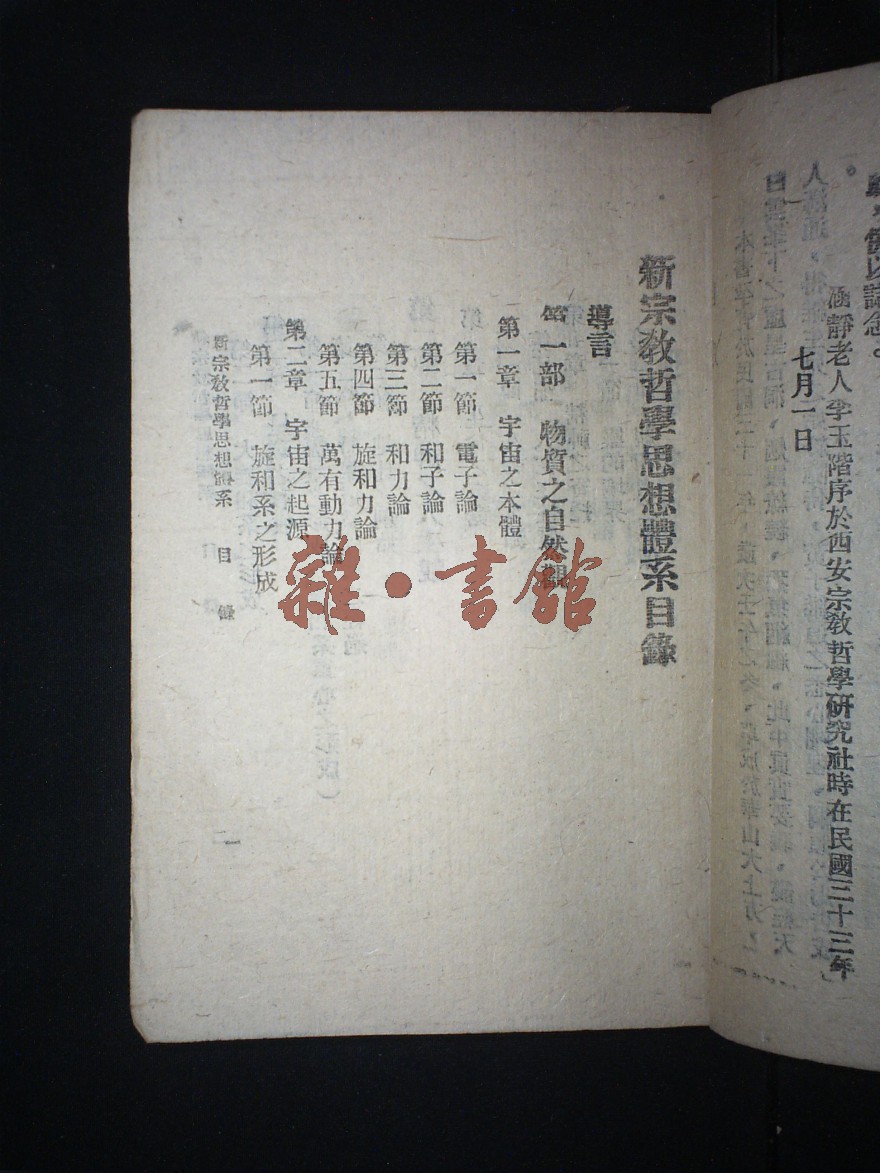 以誌念。
涵靜老人李玉階序於西安宗教哲學研究社時在民國三十三年
七月一日
新宗教哲學思想體系目錄
導言
第一部 物質之自然觀
第一章 宇宙之本體
第一節 電子論
第二節 和子論
第三節 和力論
第四節 旋和力論
第五節 萬有動力論
第二章 宇宙之起源
第一節 旋和系之形成
新宗教哲學思想體系 目 錄
一
雜·書館